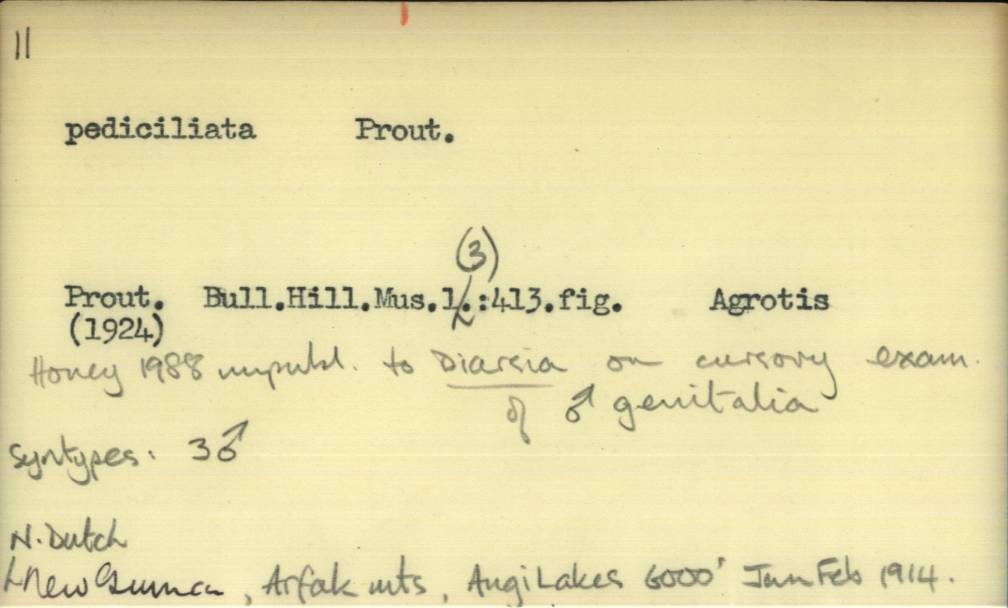 11
pediciliata Prout.
(3)
Prout. Bull.Hill.Mus.1.:413.fig. Agrotis
(1924)
Honey 1988 unpubl. to Diarsia on cursory exam.
of ♂ genitalia
Syntypes: 3♂
N. Dutch
New Guinea, Arfak mts, Angi Lakes 6000' Jan Feb 1914.